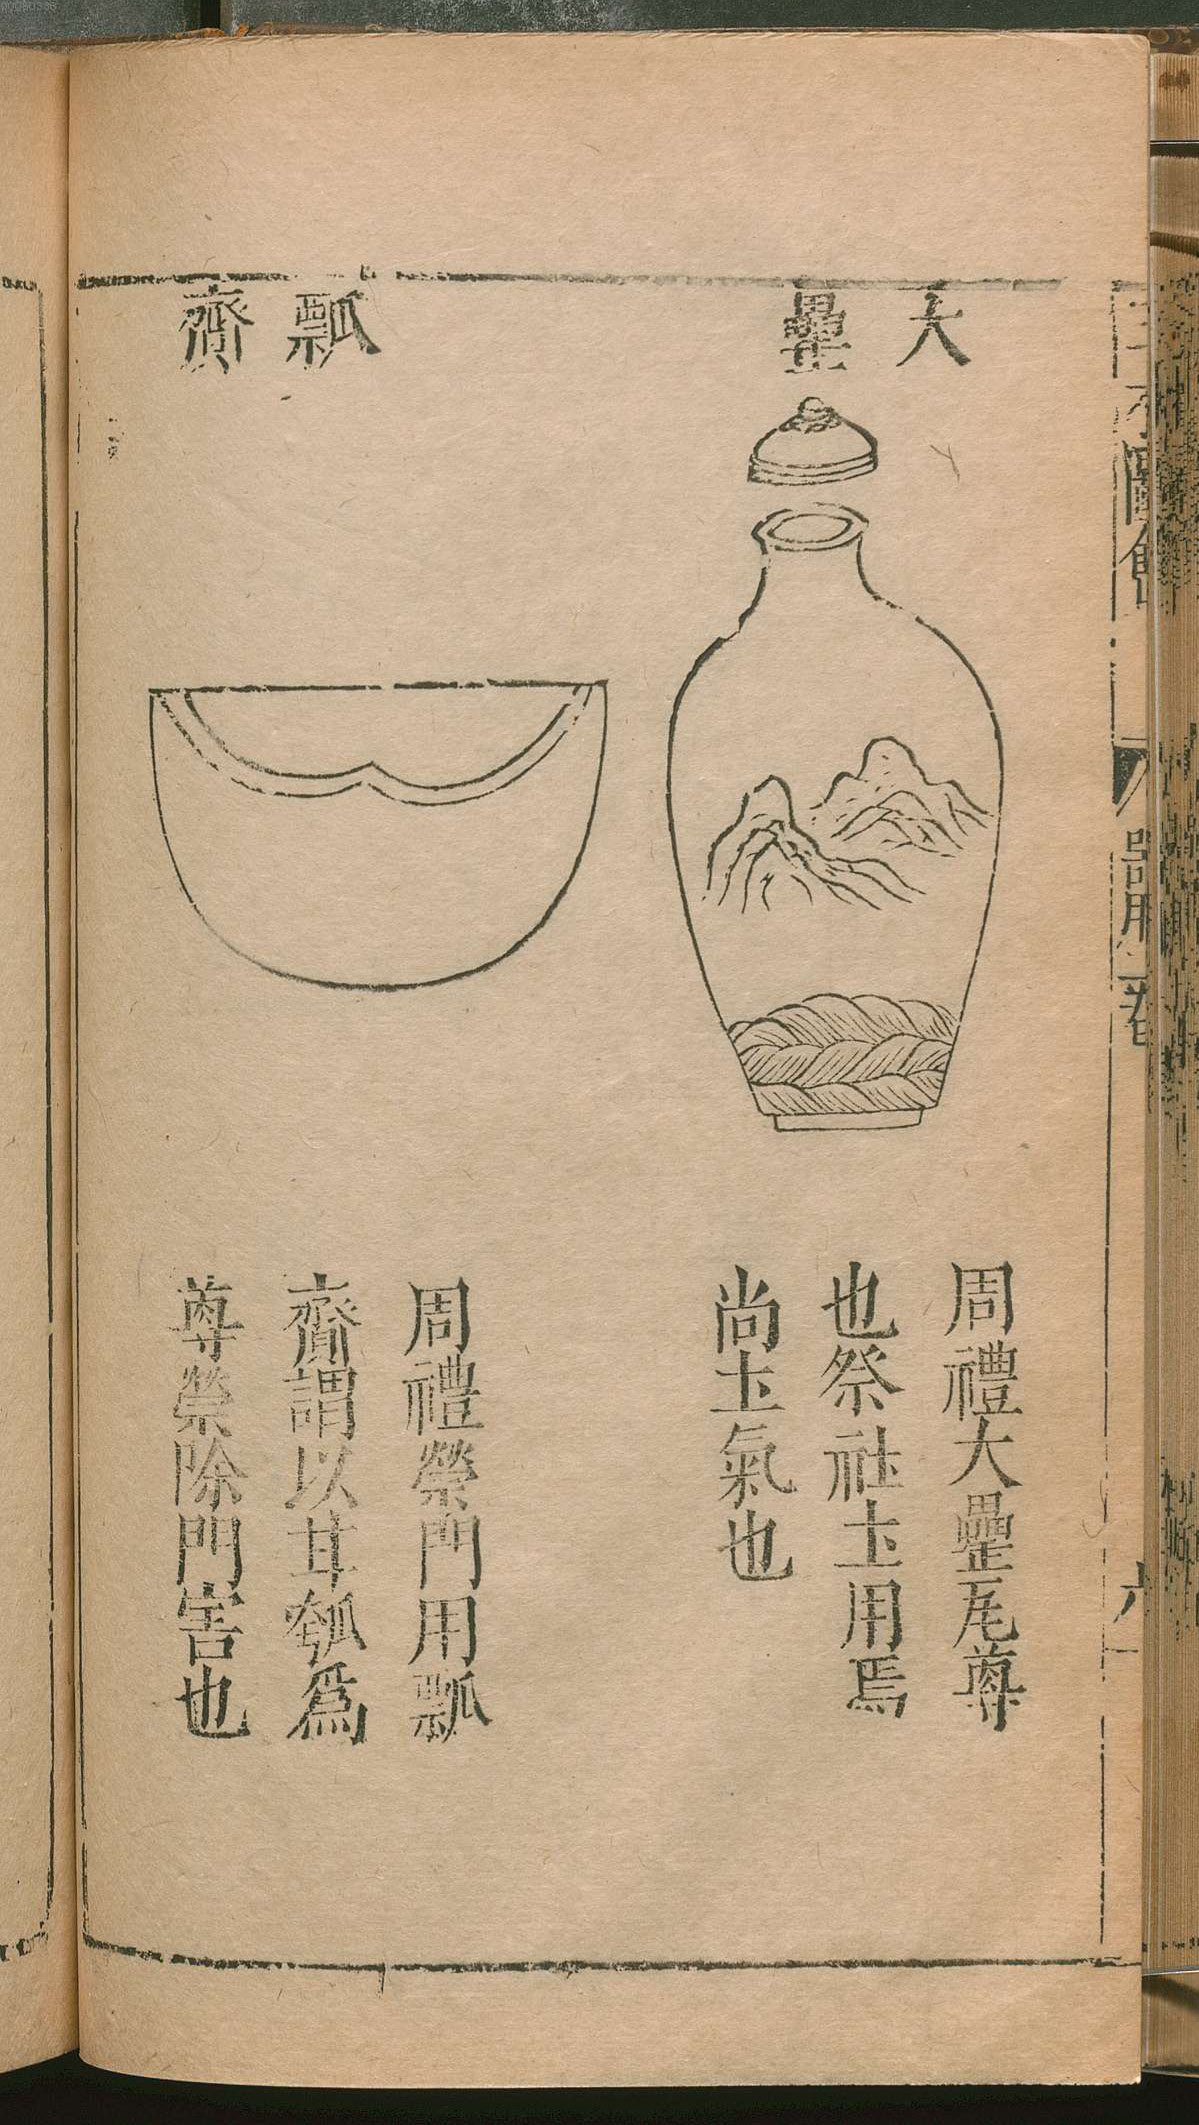 圖會
器用
大
罍
周禮大罍瓦尊
也祭社圡用焉
尚圡氣也
瓢
齎
周禮禜門用瓢
齎謂以甘瓠爲
尊禜除門害也